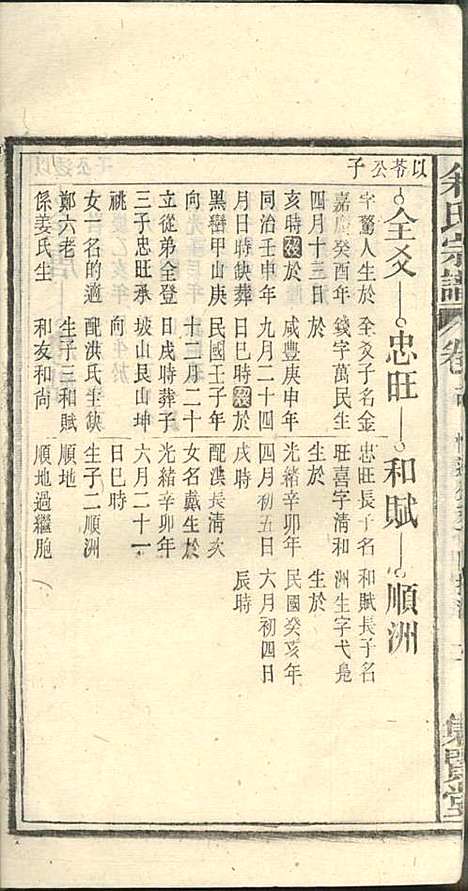 余氏宗譜
卷
集賢堂
以苓公子
全爻
忠旺
和賦
順洲
字驚人生於
嘉慶癸酉年
四月十三日
亥時歿於
同治壬申年
月日時缺葬
黑巒甲山庚
向
立從弟全登
三子忠旺承
祧
女名的適
鄭六老
係姜氏生
全爻子名金
錢字萬民生
於
咸豐庚申年
九月二十四
日巳時歿於
民國壬子年
十二月二十
日戌時葬子
坡山艮山坤
向
配洪氏年缺
生子三和賦
和友和尚
忠旺長子名
旺喜字清和
生於
光緒辛卯年
四月初五日
戌時
配淇長清次
女名戴生於
光緒辛卯年
六月二十一
日巳時
生子二順洲
順地
順地過繼胞
和賦長子名
洲生字弋
生於
民國癸亥年
六月初四日
辰時